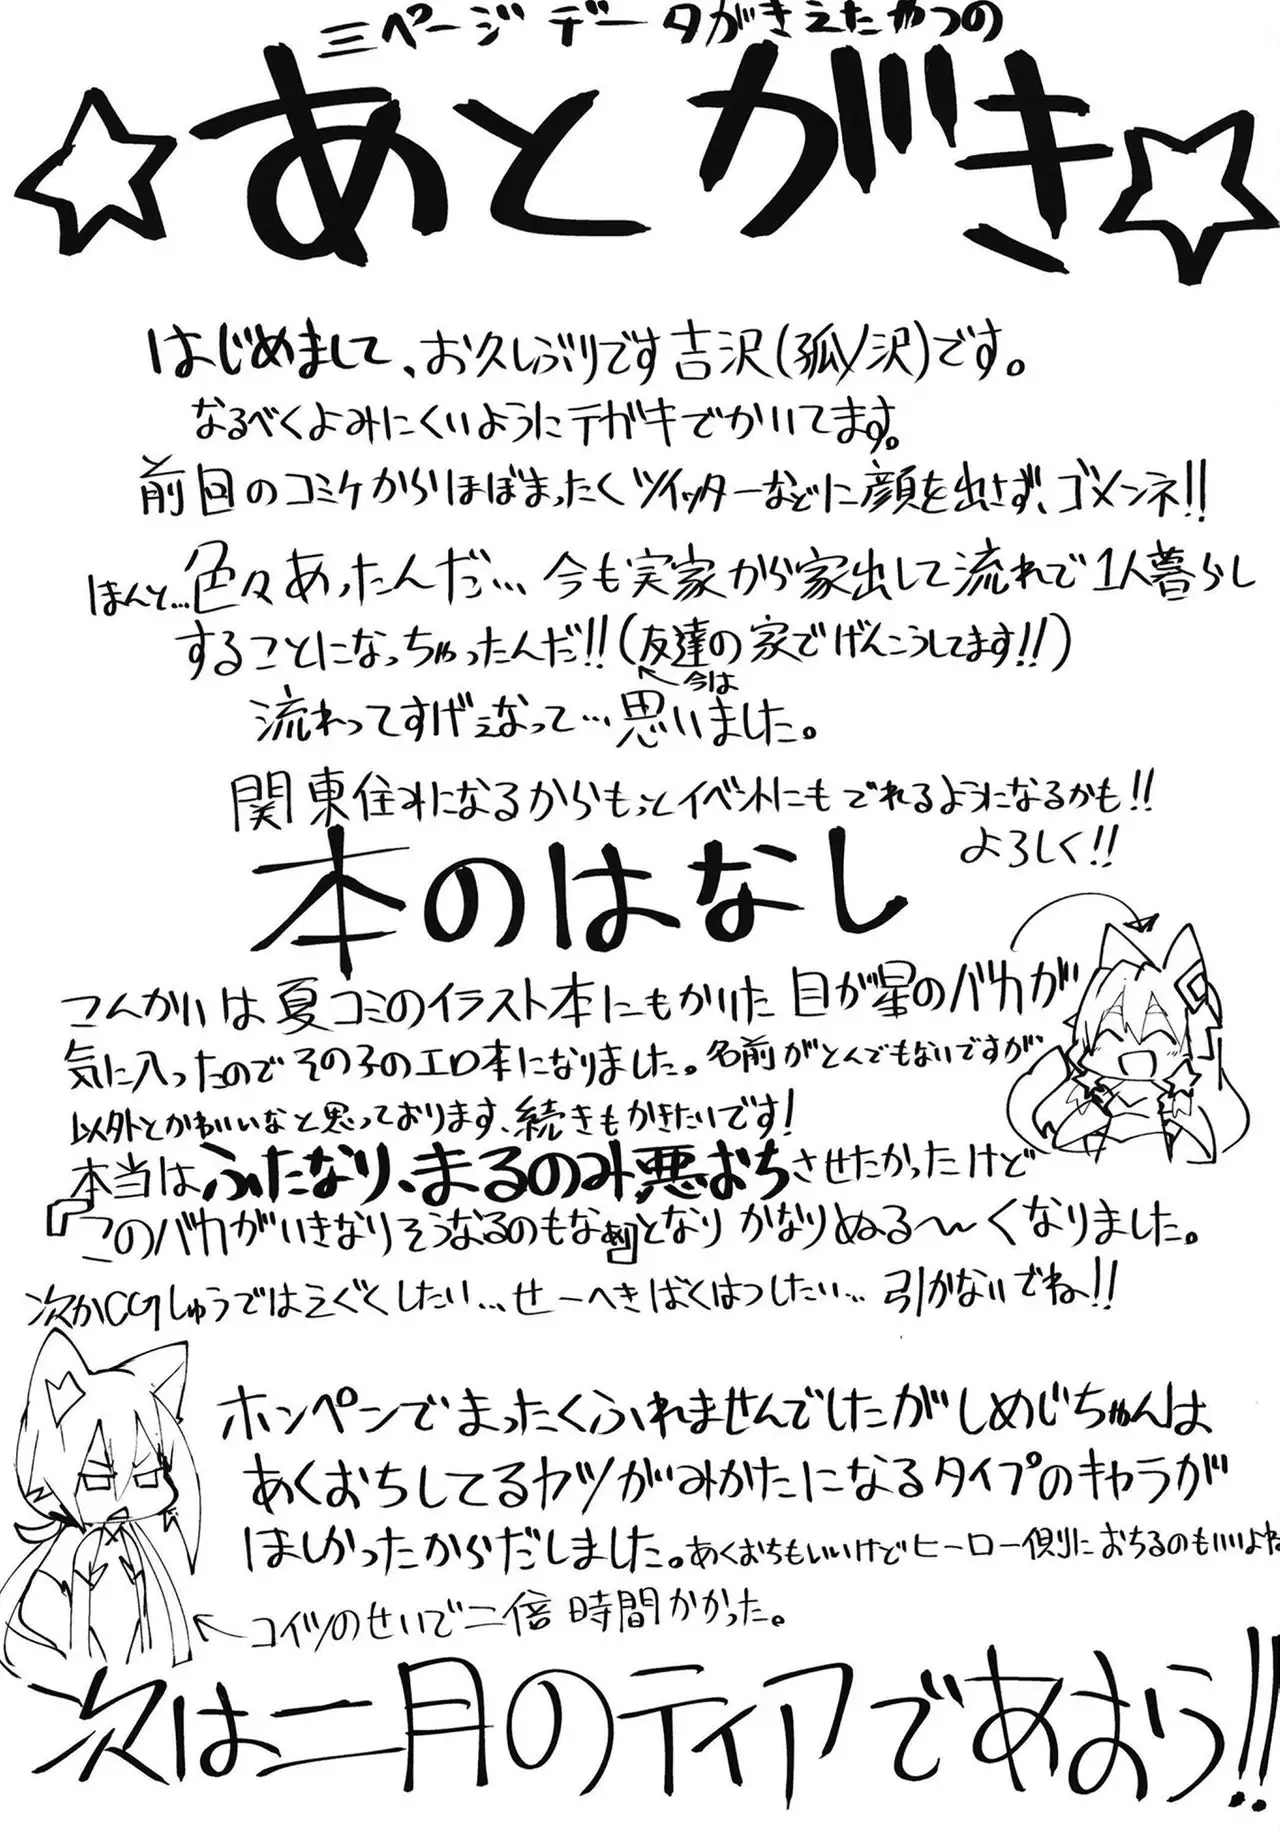 三ページデータがきえたやつの
☆あとがき☆
はじめまして、お久しぶりです吉沢(孤ノ沢)です。
なるべくよみにくいようにテガキでかいてます。
前回のコミケからほぼまったくツイッターなどに顔を出さず、ゴメンネ!!
ほんと…色々あったんだ…今も実家から家出して流れで1人暮らし
することになっちゃったんだ!!(友達の家でげんこうしてます!!)
今は
流れってすげぇなって…思いました。
関東住みになるからもっとイベントにもでれるようになるかも!!
よろしく!!
本のはなし
こんかいは夏コミのイラスト本にもかいた目が星のバカが
気に入ったのでその子のエロ本になりました。名前がとんでもないですが
以外とかわいいなと思っております、続きもかきたいです!
本当はふたなり、まるのみ悪おちさせたかったけど
『このバカがいきなりそうなるのもなぁ』となりかなりぬる〜くなりました。
次かCGしゅうではえぐくしたい…せーへきばくはつしたい…引かないでね!!
ホンペンでまったくふれませんでしたがしめじちゃんは
あくおちしてるヤツがみかたになるタイプのキャラが
ほしかったからだしました。あくおちもいいけどヒーロー側におちるのもいいよね
コイツのせいで二倍時間かかった。
次は二月のティアであおう!!